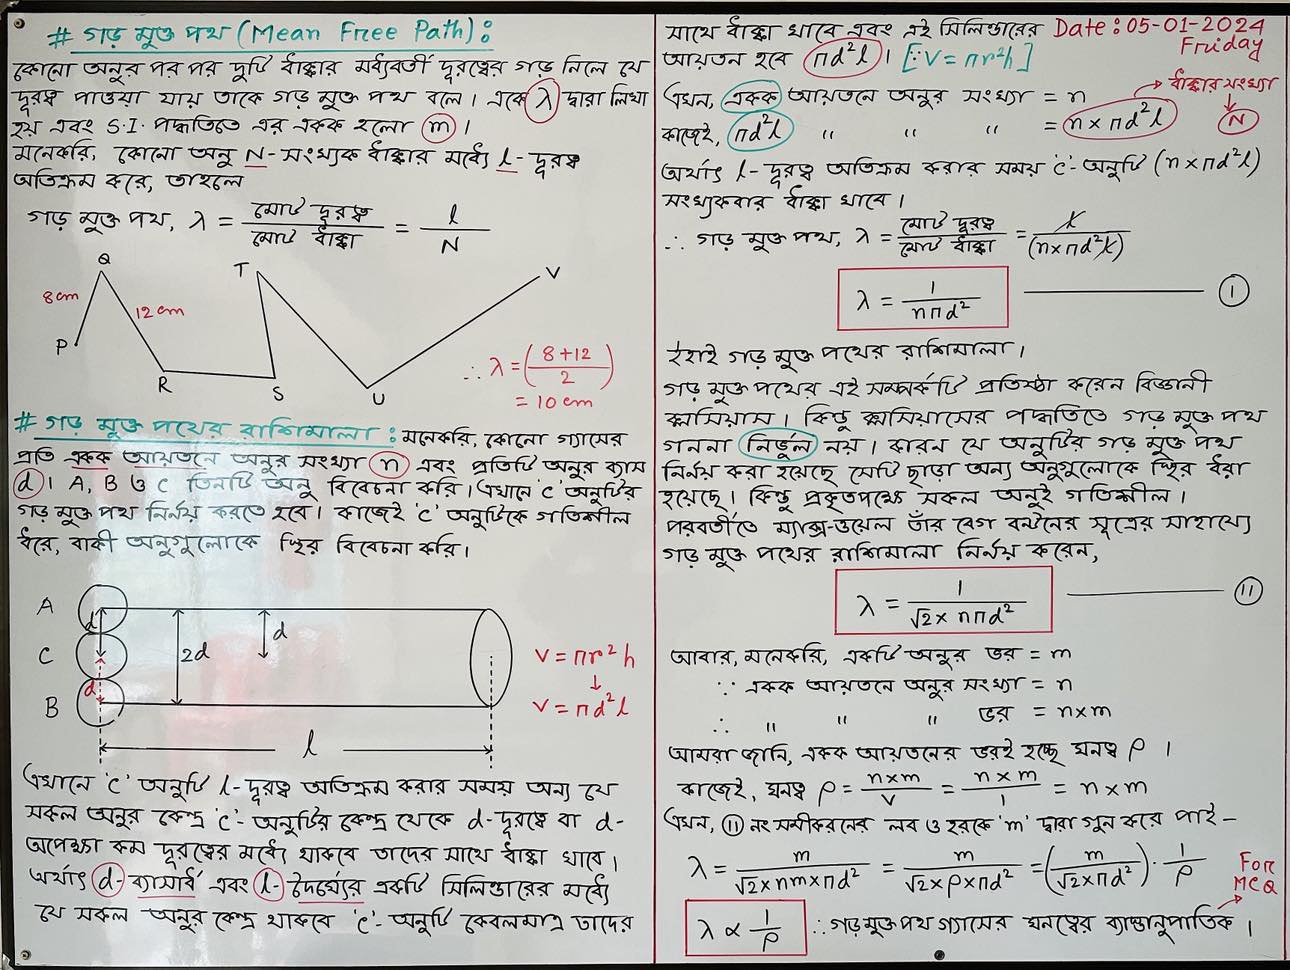 # গড় মুক্ত পথ (Mean Free Path):
কোনো অনুর পর পর দুটি ধাক্কার মধ্যবর্তী দূরত্বের গড় নিলে যে
দূরত্ব পাওয়া যায় তাকে গড় মুক্ত পথ বলে। একে λ দ্বারা লিখা
হয় এবং S.I. পদ্ধতিতে এর একক হলো m।
মনেকরি, কোনো অনু N-সংখ্যক ধাক্কার মধ্যে l-দূরত্ব
অতিক্রম করে, তাহলে
গড় মুক্ত পথ, λ = মোট দূরত্ব / মোট ধাক্কা = l / N
Q T V
8cm
12cm
P
R S U
∴ λ = ((8+12) / 2)
= 10 cm
# গড় মুক্ত পথের রাশিমালা: মনেকরি, কোনো গ্যাসের
প্রতি একক আয়তনে অনুর সংখ্যা n এবং প্রতিটি অনুর ব্যাস
d। A, B ও C তিনটি অনু বিবেচনা করি। এখানে 'C' অনুটির
গড় মুক্ত পথ নির্নয় করতে হবে। কাজেই 'C' অনুটিকে গতিশীল
ধরে, বাকী অনুগুলোকে স্থির বিবেচনা করি।
A
d
d
C
2d
V = πr²h
↓
d
B
V = πd²l
l
এখানে 'C' অনুটি l-দূরত্ব অতিক্রম করার সময় অন্য যে
সকল অনুর কেন্দ্র 'C'-অনুটির কেন্দ্র থেকে d-দূরত্বে বা d-
অপেক্ষা কম দূরত্বের মধ্যে থাকবে তাদের সাথে ধাক্কা খাবে।
অর্থাৎ d-ব্যাসার্ধ এবং l-দৈর্ঘ্যের একটি সিলিন্ডারের মধ্যে
যে সকল অনুর কেন্দ্র থাকবে 'C'-অনুটি কেবলমাত্র তাদের
সাথে ধাক্কা খাবে এবং এই সিলিন্ডারের
Date: 05-01-2024
Friday
আয়তন হবে πd²l। [∵V = πr²h]
এখন, একক আয়তনে অনুর সংখ্যা = n
→ ধাক্কার সংখ্যা
↓
N
কাজেই, πd²l " " " = n×πd²l
অর্থাৎ l-দূরত্ব অতিক্রম করার সময় 'C'-অনুটি (n×πd²l)
সংখ্যকবার ধাক্কা খাবে।
∴ গড় মুক্ত পথ, λ = মোট দূরত্ব / মোট ধাক্কা = l / (n×πd²l)
λ = 1 / nπd² ——— I
ইহাই গড় মুক্ত পথের রাশিমালা।
গড় মুক্ত পথের এই সমপর্কটি প্রতিষ্ঠা করেন বিজ্ঞানী
ক্লসিয়াস। কিন্তু ক্লসিয়াসের পদ্ধতিতে গড় মুক্ত পথ
গননা নির্ভুল নয়। কারন যে অনুটির গড় মুক্ত পথ
নির্নয় করা হয়েছে সেটি ছাড়া অন্য অনুগুলোকে স্থির ধরা
হয়েছে। কিন্তু প্রকৃতপক্ষে সকল অনুই গতিশীল।
পরবর্তীতে ম্যাক্স-ওয়েল তাঁর বেগ বন্টনের সূত্রের সাহায্যে
গড় মুক্ত পথের রাশিমালা নির্নয় করেন,
λ = 1 / √2 × nπd² ——— II
আবার, মনেকরি, একটি অনুর ভর = m
∵ একক আয়তনে অনুর সংখ্যা = n
∴ " " " ভর = n×m
আমরা জানি, একক আয়তনের ভরই হচ্ছে ঘনত্ব ρ।
কাজেই, ঘনত্ব ρ = n×m / V = n×m / 1 = n×m
এখন, II নং সমীকরনের লব ও হরকে 'm' দ্বারা গুন করে পাই-
λ = m / √2×nm×πd² = m / √2×ρ×πd² = (m / √2×πd²)·1/ρ
For
MCQ
λ ∝ 1/ρ ∴ গড় মুক্ত পথ গ্যাসের ঘনত্বের ব্যাস্তানুপাতিক।